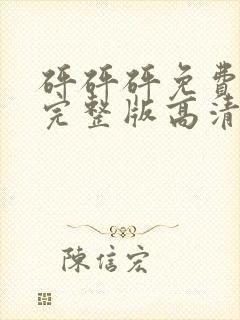 砰砰砰免費
完整版高清
陳信宏